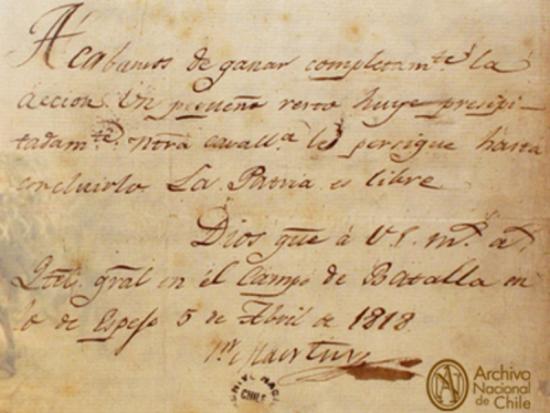 Acabamos de ganar completam.te la
accion. Un pequeño resto huye presipi-
tadam.te Ntra cavall.a le persigue hasta
concluirlo. La Patria es libre
Dios gue à V.S. m.s a.s
Qtel. gral en el Campo de Batalla en
lo de Espejo 5 de Abril de 1818.
Archivo
Nacional
de Chile
CHILE